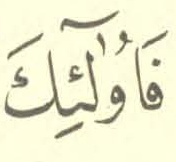 فَأُو۟لَٰٓئِكَ